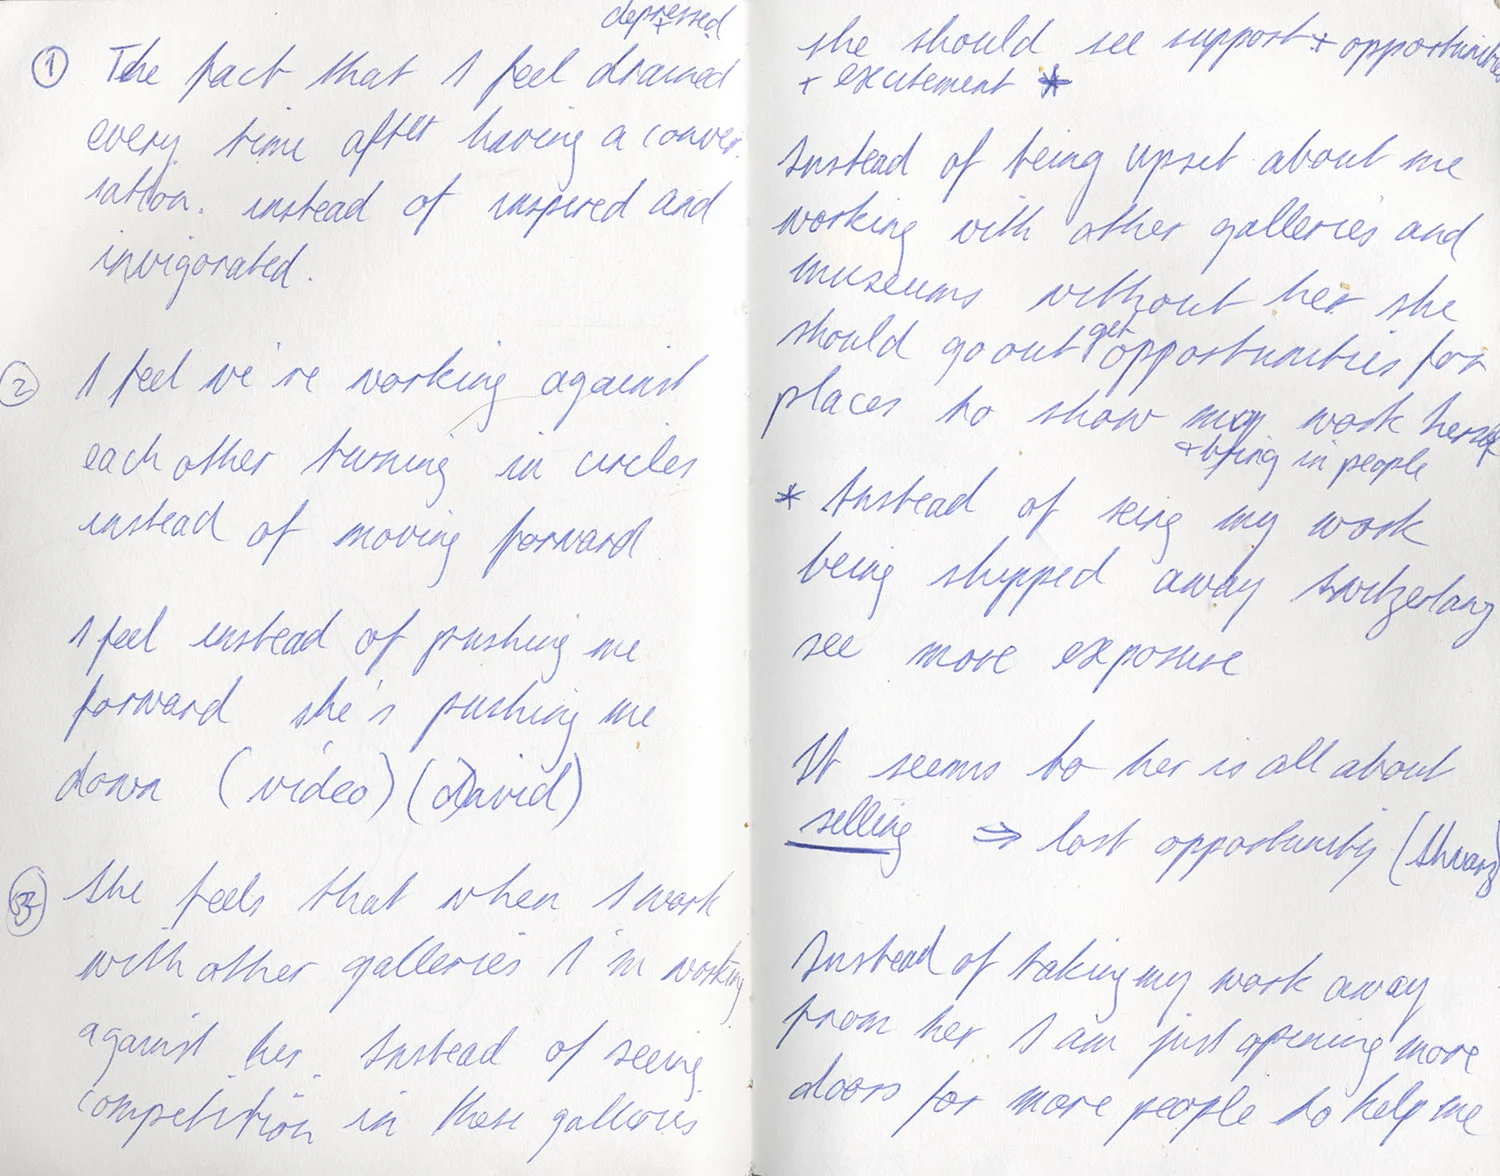 depressed
① The fact that I feel drained +
every time after having a conver.
sation. instead of inspired and
invigorated.
② I feel we're working against
each other turning in circles
instead of moving forward
I feel instead of pushing me
forward she's pushing me
down (video) (David)
③ She feels that when I work
with other galleries I'm working
against her. Instead of seeing
competition in those galleries
she should see support + opportunities
+ excitement *
Instead of being upset about me
working with other galleries and
museums without her she
should go out get opportunities for
places to show my work herself
+ bring in people
* Instead of seing my work
being shipped away Switzerland
see more exposure
It seems to her is all about
selling ⇒ lost opportunity
Instead of taking my work away
from her I am just opening more
doors for more people to help me